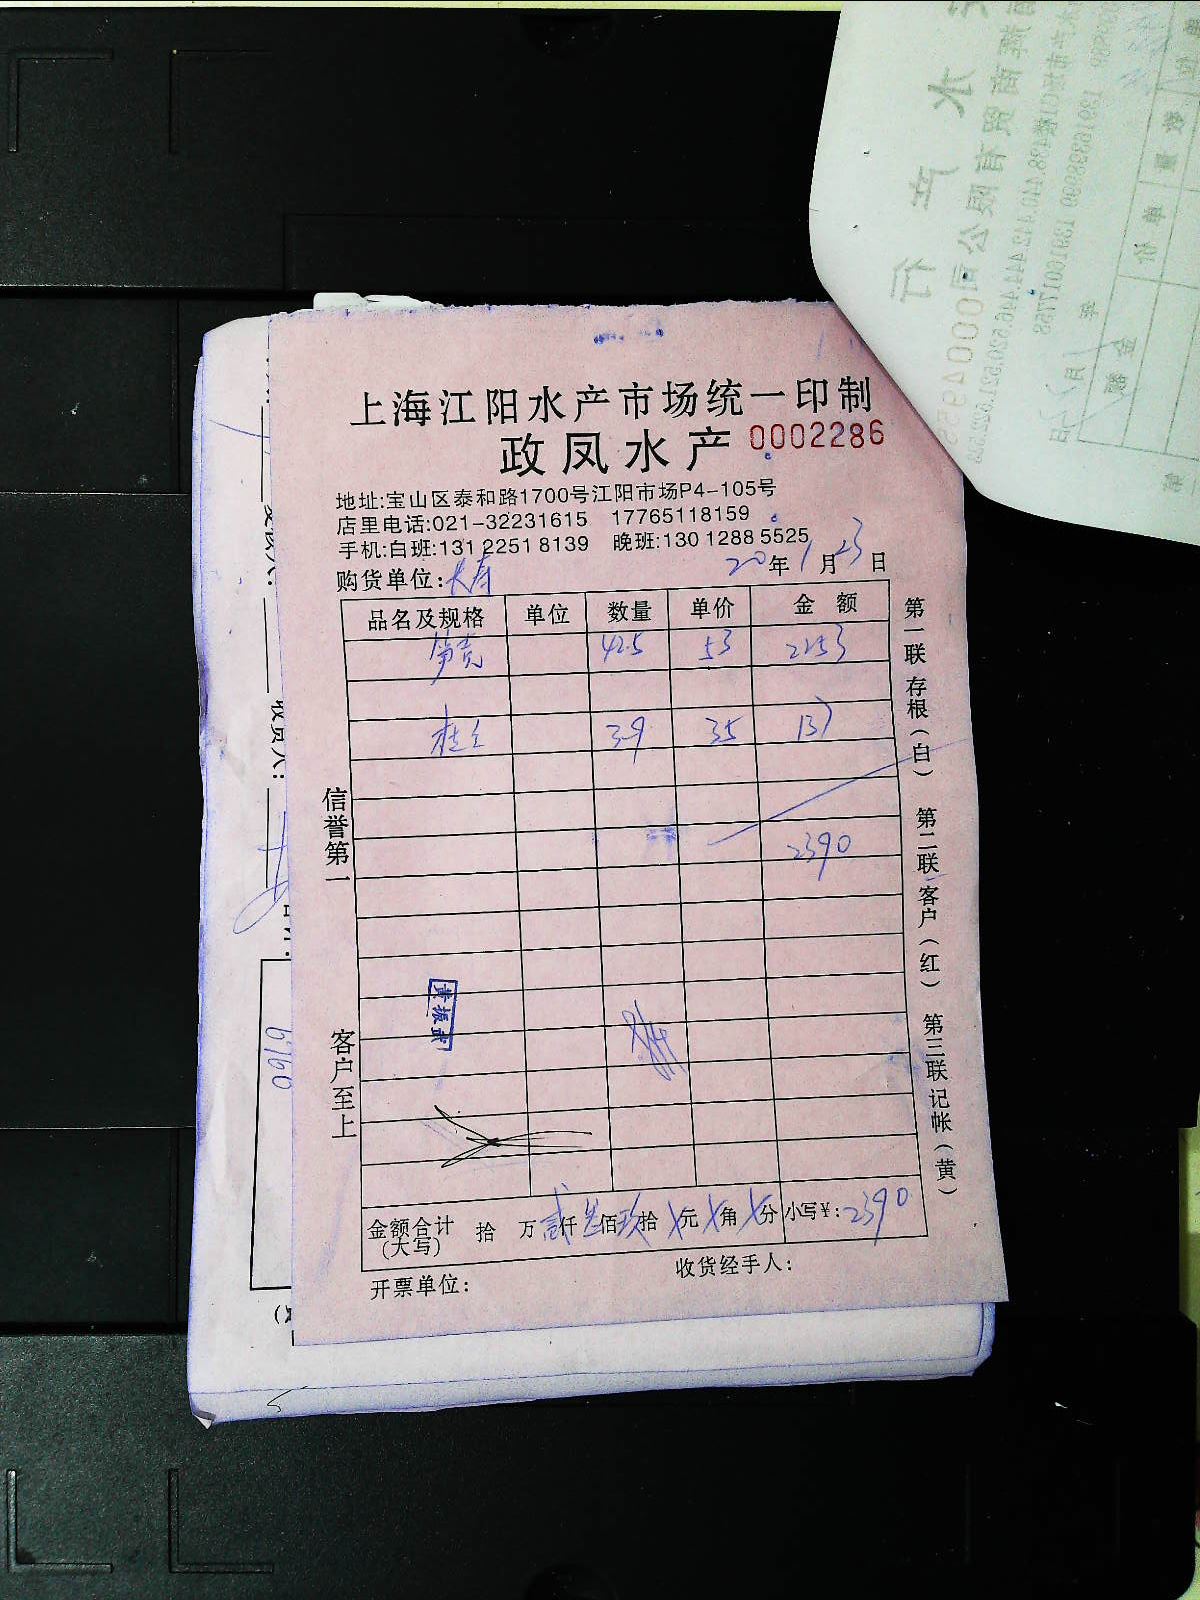 上海江阳水产市场统一印制
政凤水产 0002286
地址:宝山区泰和路1700号江阳市场P4-105号
店里电话:021-32231615 17765118159
手机:白班:131 2251 8139 晚班:130 1288 5525
购货单位:长寿 20年1月23日
品名及规格 单位 数量 单价 金额
笋壳 42.5 53 2253
桂鱼 3.9 35 137
2390
信誉第一
客户至上
黄振武
金额合计(大写) 拾 万 贰仟 叁佰 玖拾 元 角 分 小写¥:2390
开票单位: 收货经手人:
第一联 存根(白) 第二联 客户(红) 第三联 记帐(黄)
收货人:
6760
水产行